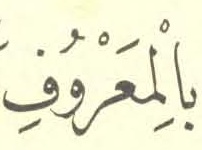 بِالْمَعْرُوْفِ